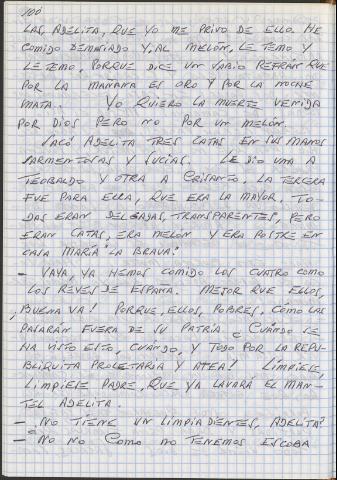 100
LAS, ADELITA, QUE YO ME PRIVO DE ELLO. HE
COMIDO DEMASIADO Y, AL MELÓN, LE TEMO Y
LE TEMO, PORQUE DICE UN SABIO REFRÁN QUE
POR LA MAÑANA ES ORO Y POR LA NOCHE
MATA. YO QUIERO LA MUERTE VENIDA
POR DIOS PERO NO POR UN MELÓN.
SACÓ ADELITA TRES CATAS EN SUS MANOS
SARMENTOSAS Y SUCIAS. LE DIO UNA A
TEOBALDO Y OTRA A CRISANTO. LA TERCERA
FUE PARA ELLA, QUE ERA LA MAYOR. TO-
DAS ERAN DELGADAS, TRANSPARENTES, PERO
ERAN CATAS, ERA MELÓN Y ERA POSTRE EN
CASA MARÍA "LA BRAVA".
- VAYA, YA HEMOS COMIDO LOS CUATRO COMO
LOS REYES DE ESPAÑA. MEJOR QUE ELLOS,
¡BUENA VA! PORQUE, ELLOS, POBRES, CÓMO LAS
PASARÁN FUERA DE SU PATRIA ¿CUÁNDO SE
HA VISTO ESTO, CUÁNDO, Y TODO POR LA REPU-
BLIQUITA PROLETARIA Y ATEA! LÍMPIESE,
LÍMPIESE PADRE, QUE YA LAVARÁ EL MAN-
TEL ADELITA.
- ¿NO TIENE UN LIMPIADIENTES, ADELITA?
- NO NO COMO NO TENEMOS ESCOBA